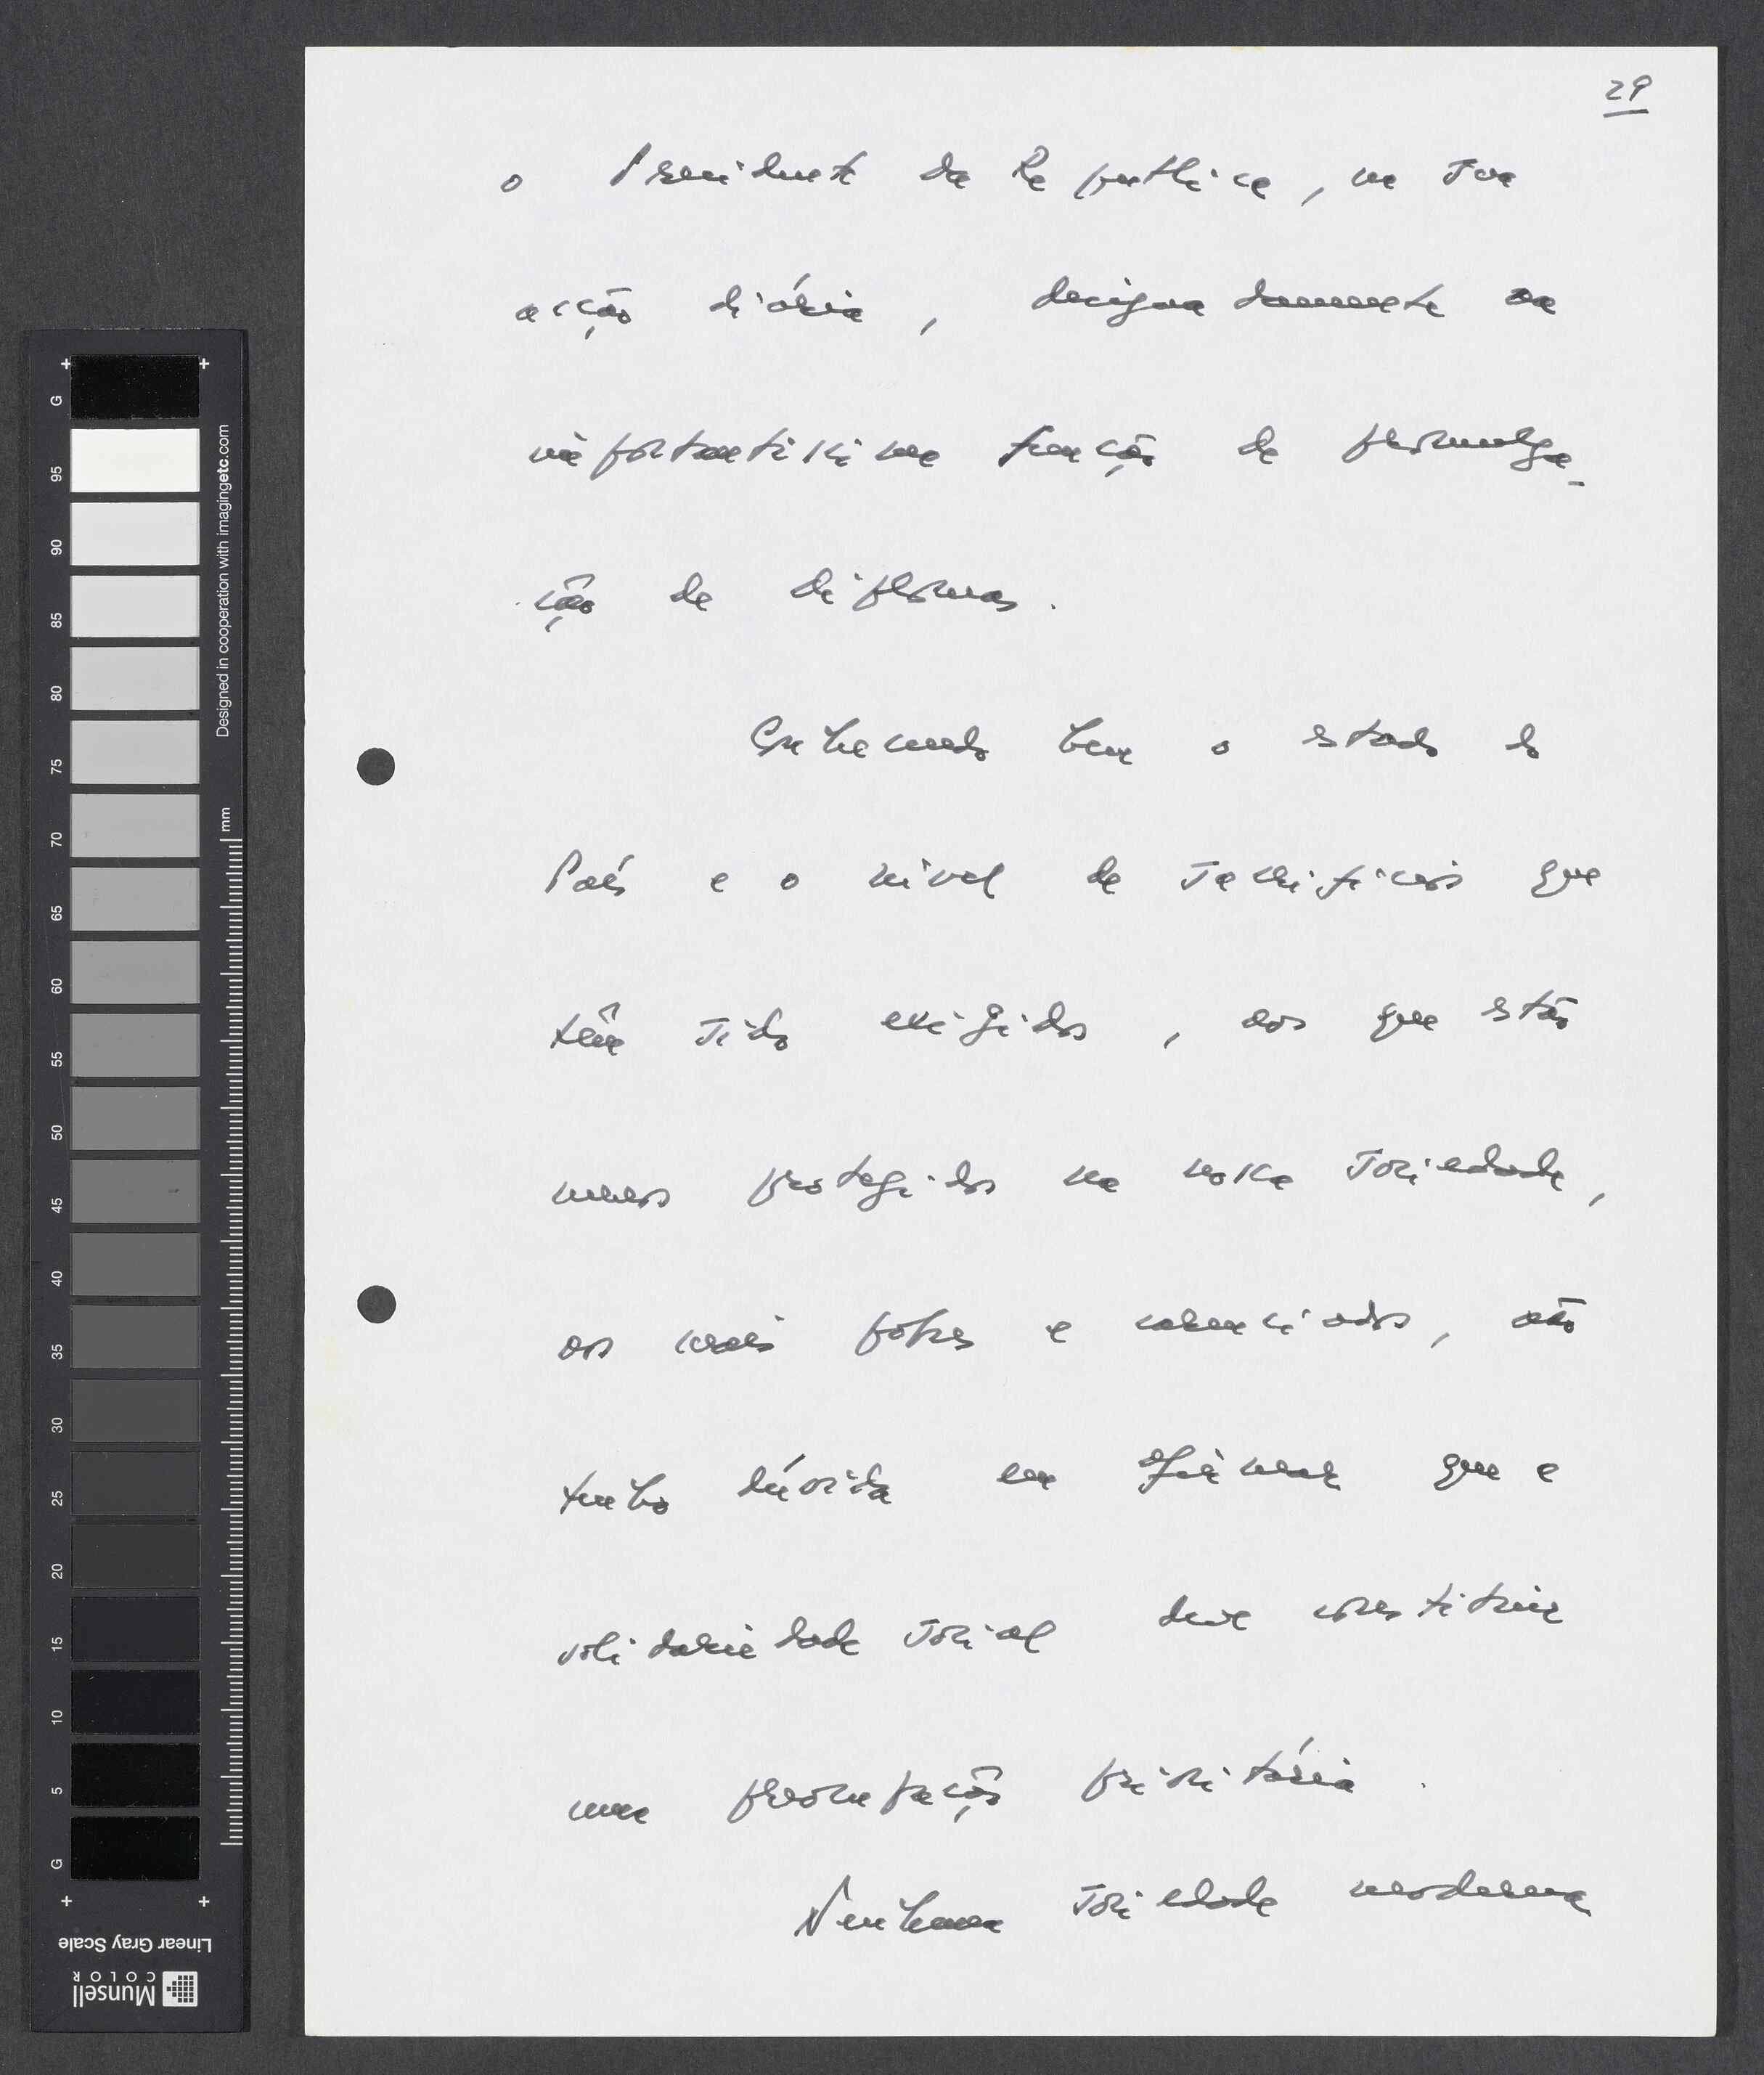 29
o Presidente da República, na sua
acção diária, designadamente na
importantíssima função de promulga-
ção de diplomas.
Conhecendo bem o estado do
País e o nível de sacrifícios que
têm sido exigidos, aos que estão
menos protegidos na nossa sociedade,
aos mais pobres e carenciados, não
tenho dúvida em afirmar que a
solidariedade social deve constituir
uma preocupação prioritária.
Nenhuma sociedade moderna
+ +
G
95
90
85
80
75
70
65
60
55
50
45
40
35
30
25
20
15
10
5
G
+ +
mm
Designed in cooperation with imagingetc.com
Linear Gray Scale
Munsell
COLOR